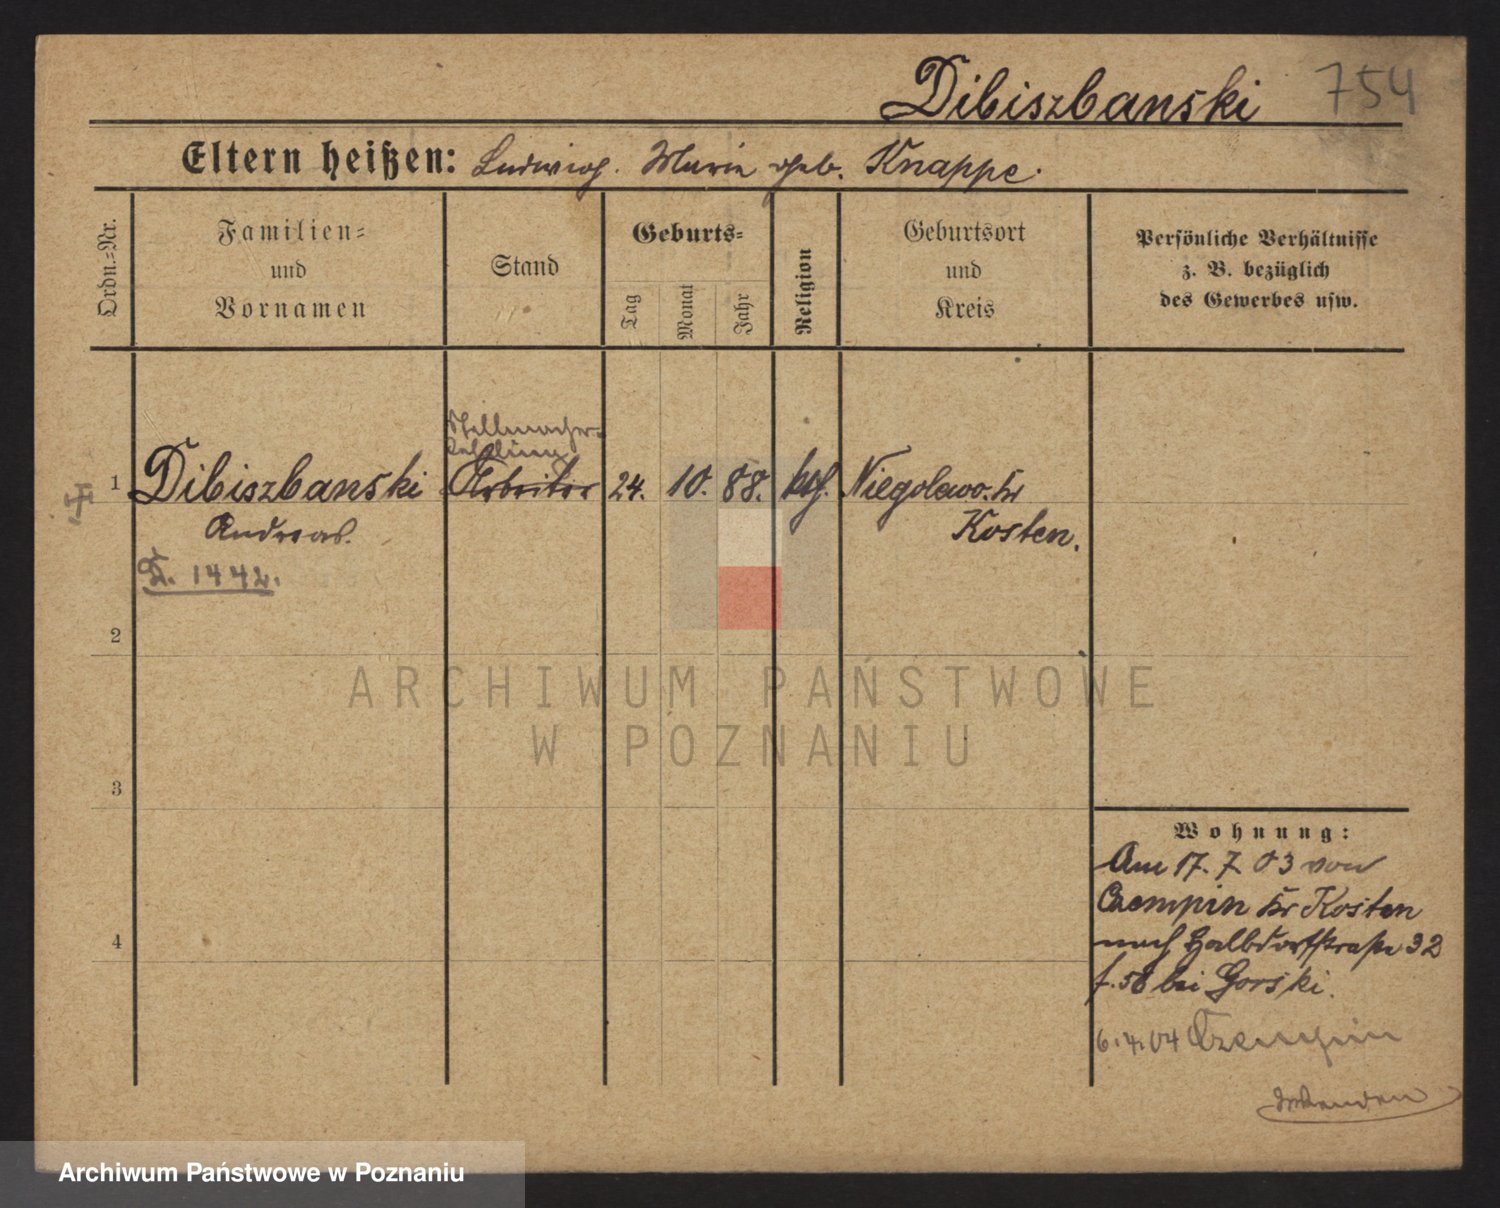 Dibiszbanski 754
Eltern heißen: Ludwig. Marie geb. Knappe.
Ordn.-Nr.
Familien-
und
Vornamen
Stand
Geburts-
Tag
Monat
Jahr
Religion
Geburtsort
und
Kreis
Persönliche Verhältnisse
z. B. bezüglich
des Gewerbes usw.
Stellmacher-
lehrling
1 Dibiszbanski Arbeiter 24. 10. 88. kath. Niegolewo. Kr
Andreas. Kosten.
Z. 1442.
2
3
4
Wohnung:
Am 17. 7. 03 von
Czempin Kr Kosten
nach Halbdorfstraße 32
bei Gorski.
6.4.04 Czempin
Wenden
ARCHIWUM PAŃSTWOWE
W POZNANIU
Archiwum Państwowe w Poznaniu